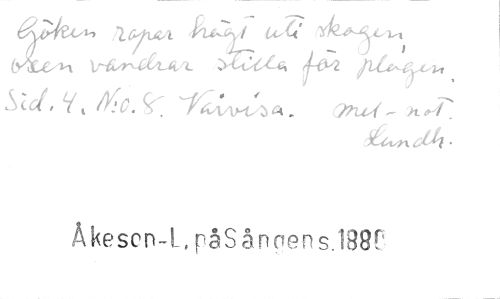 Göken ropar högt uti skogen,
oxen vandrar stilla för plogen.
Sid. 4. N:o. 8. Vårvisa. mel-not.
Lundh.
Åkeson-L. påSångens.1880